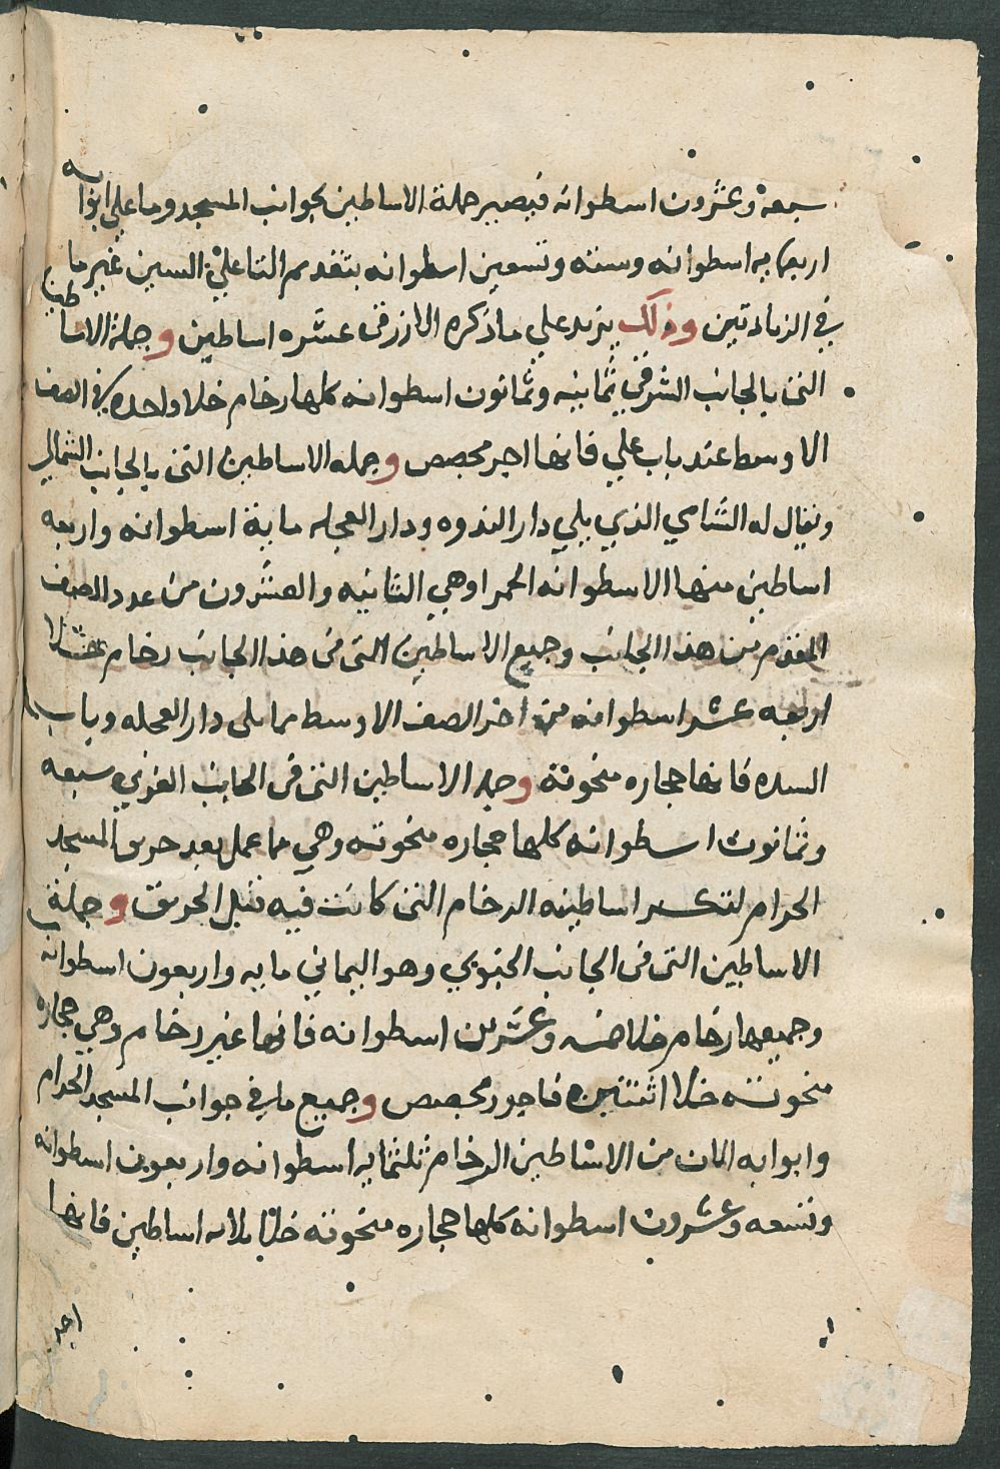 سبعة وعشرون اسطوانه فيصير جملة الاساطين بجوانب المسجد وما علي ابوابه
اربعمايه اسطوانه وسته وتسعين اسطوانه بتقديم التا علي السين غير ما
في الزيادتين وذلك يزيد علي ما ذكره الازرقي عشره اساطين وجملة الاساطين
التي بالجانب الشرقي ثمانيه وثمانون اسطوانه كلها رخام خلا واحده في الصف
الاوسط عند باب علي فانها اجر مجصص وجمله الاساطين التي بالجانب الشمالي
ويقال له الشامي الذي يلي دار الندوه ودار العجله ماية اسطوانه واربعه
اساطين منها الاسطوانه الحمرا وهي الثانيه والعشرون من عدد الصف
المقدم من هذا الجانب وجميع الاساطين التي في هذا الجانب رخام خلا
اربعه عشر اسطوانه من اخر الصف الاوسط مما يلي دار العجله وباب
السده فانها حجاره منحوتة وجمله الاساطين التي في الجانب الغربي سبعه
وثمانون اسطوانه كلها حجاره منحوته وهي مما عمل بعد حريق المسجد
الحرام لتكسر اساطينه الرخام التي كانت فيه قبل الحريق وجملة
الاساطين التي في الجانب الجنوبي وهو اليماني مايه واربعون اسطوانه
وجميعها رخام خلا خمسه وعشرين اسطوانه فانها غير رخام وهي حجاره
منحوته خلا اثنتين فاجور مجصص وجميع ما في جوانب المسجد الحرام
وابوابه الان من الاساطين الرخام ثلثمايه اسطوانه واربعون اسطوانه
وتسعه وعشرون اسطوانه كلها حجاره منحوته خلا ثلاثه اساطين فانها
اجر